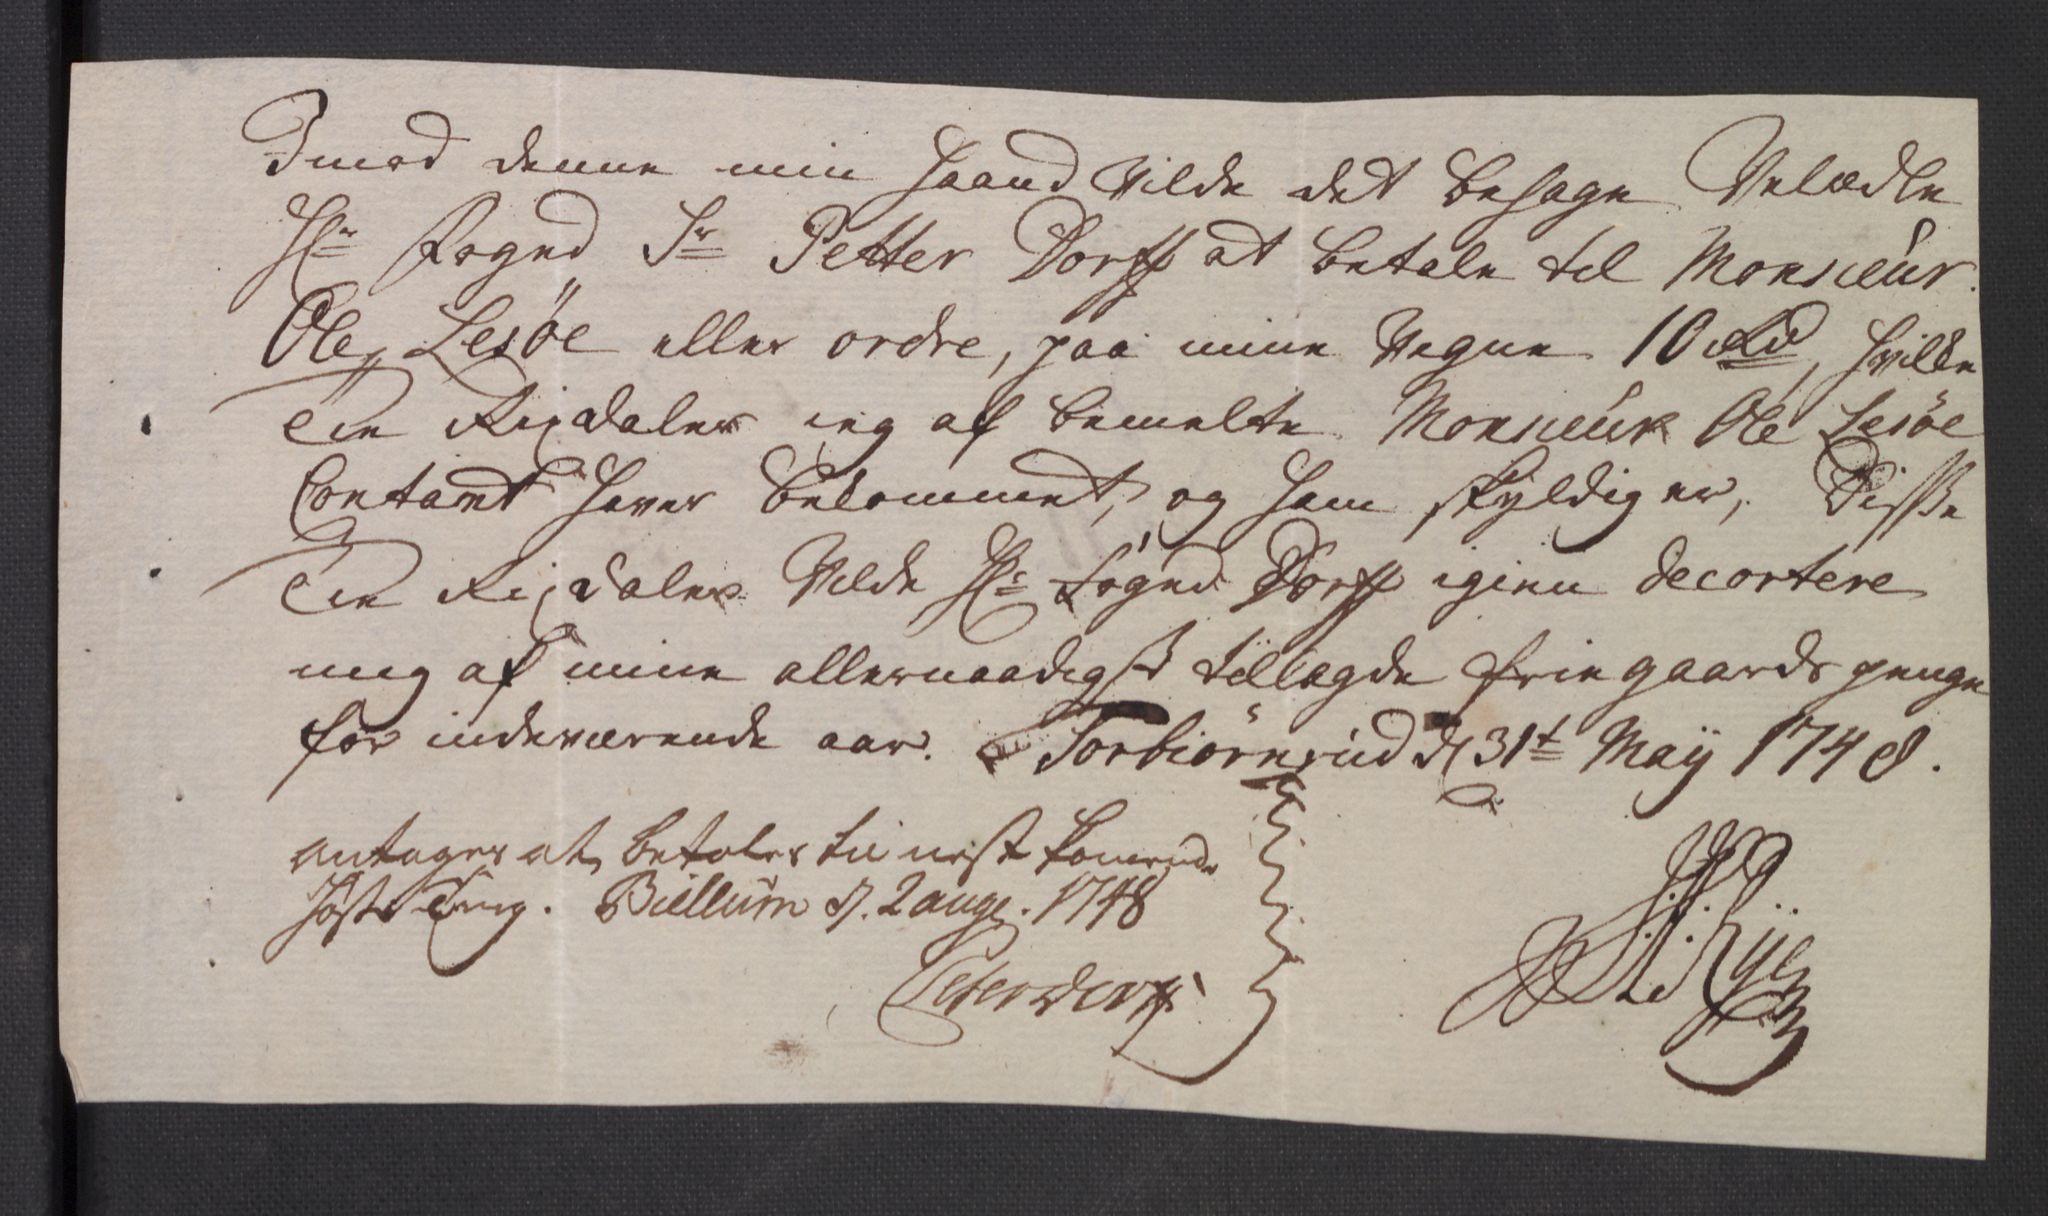 Imod denne min Haand Vilde det behage Velædle
Hr Foged Sr Petter Dorff at betale til Monsieur
Ole Lesöe eller ordre, paa mine Vegne 10 Rd, hvilke
Tie Rixdaler ieg af bemelte Monsieur Ole Lesöe
Contant haver bekommet, og ham skyldig er, Disse
Tie Rixdaler Vilde Hr Foged Dorff igien decortere
mig af mine allernaadigst tillagde frie gaards penge
for indeværende aar. Torbiörnrud d 31t Maij 1748.
antages at betales til nest komende
Höste Ting. Biellum d. 2 aug. 1748
Peter Dorff
Rÿe